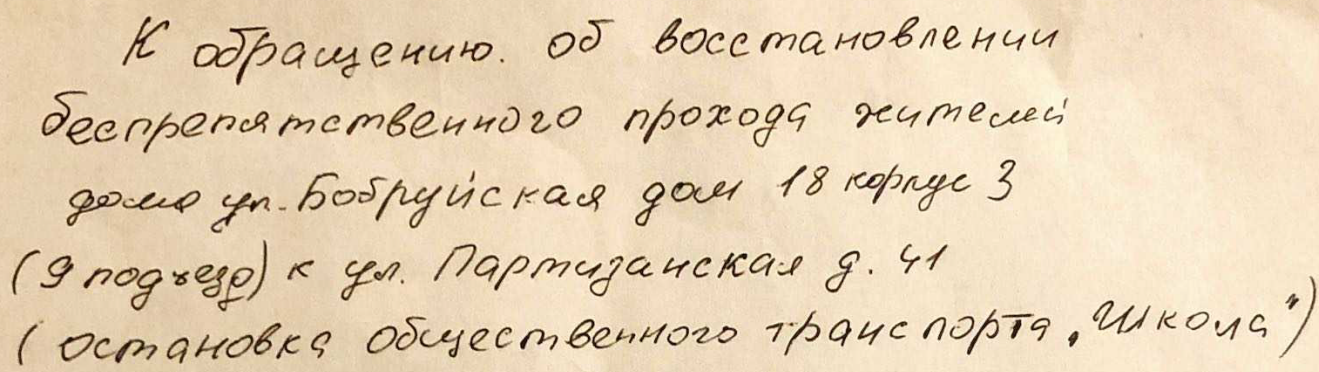 К обращению. об восстановлении
беспрепятственного прохода жителей
дома ул. Бобруйская дом 18 корпус 3
(9 подъезд) к ул. Партизанская д. 41
(остановка общественного транспорта „Школа")